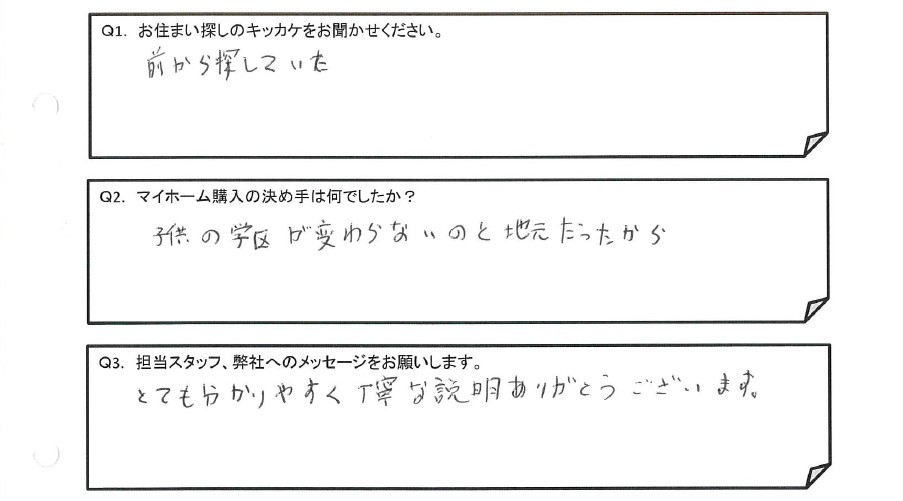 Q1. お住まい探しのキッカケをお聞かせください。
前から探していた
Q2. マイホーム購入の決め手は何でしたか？
子供の学区が変わらないのと地元だったから
Q3. 担当スタッフ、弊社へのメッセージをお願いします。
とても分かりやすく丁寧な説明ありがとうございます。